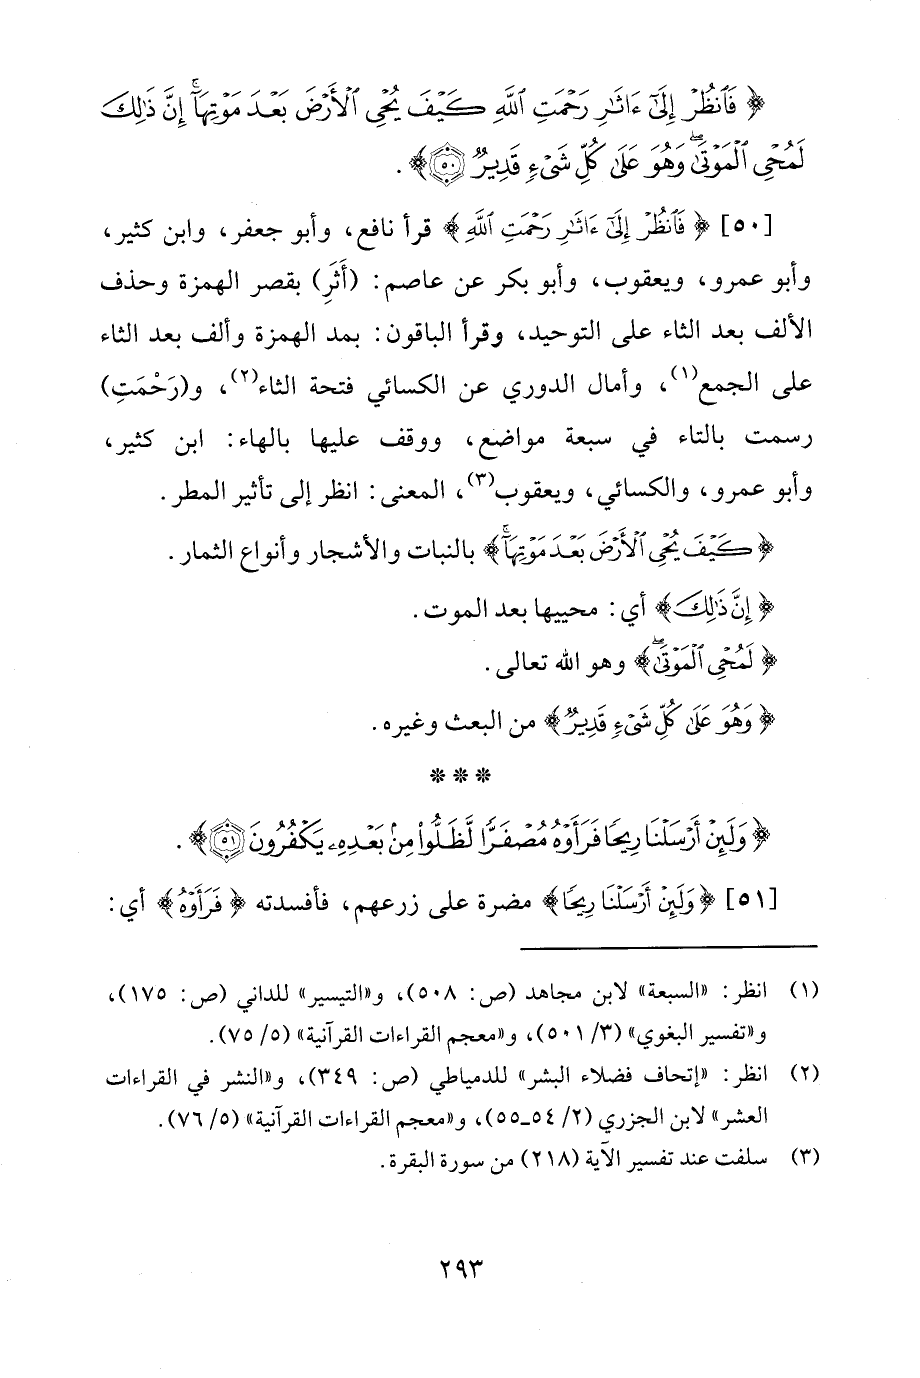 ﴿ فَٱنظُرۡ إِلَىٰٓ ءَاثَٰرِ رَحۡمَتِ ٱللَّهِ كَيۡفَ يُحۡيِ ٱلۡأَرۡضَ بَعۡدَ مَوۡتِهَآۚ إِنَّ ذَٰلِكَ
لَمُحۡيِ ٱلۡمَوۡتَىٰۖ وَهُوَ عَلَىٰ كُلِّ شَيۡءٖ قَدِيرٞ ٥٠ ﴾ .
[٥٠] ﴿ فَٱنظُرۡ إِلَىٰٓ ءَاثَٰرِ رَحۡمَتِ ٱللَّهِ ﴾ قرأ نافع، وأبو جعفر، وابن كثير،
وأبو عمرو، ويعقوب، وأبو بكر عن عاصم: (أَثَرِ) بقصر الهمزة وحذف
الألف بعد الثاء على التوحيد، وقرأ الباقون: بمد الهمزة وألف بعد الثاء
على الجمع(١)، وأمال الدوري عن الكسائي فتحة الثاء(٢)، و(رَحْمَتِ)
رسمت بالتاء في سبعة مواضع، ووقف عليها بالهاء: ابن كثير،
وأبو عمرو، والكسائي، ويعقوب(٣)، المعنى: انظر إلى تأثير المطر.
﴿ كَيۡفَ يُحۡيِ ٱلۡأَرۡضَ بَعۡدَ مَوۡتِهَآۚ ﴾ بالنبات والأشجار وأنواع الثمار.
﴿ إِنَّ ذَٰلِكَ ﴾ أي: محييها بعد الموت.
﴿ لَمُحۡيِ ٱلۡمَوۡتَىٰۖ ﴾ وهو الله تعالى.
﴿ وَهُوَ عَلَىٰ كُلِّ شَيۡءٖ قَدِيرٞ ﴾ من البعث وغيره.
* * *
﴿ وَلَئِنۡ أَرۡسَلۡنَا رِيحٗا فَرَأَوۡهُ مُصۡفَرّٗا لَّظَلُّواْ مِنۢ بَعۡدِهِۦ يَكۡفُرُونَ ٥١ ﴾ .
[٥١] ﴿ وَلَئِنۡ أَرۡسَلۡنَا رِيحٗا ﴾ مضرة على زرعهم، فأفسدته ﴿ فَرَأَوۡهُ ﴾ أي:
(١) انظر: «السبعة» لابن مجاهد (ص: ٥٠٨)، و«التيسير» للداني (ص: ١٧٥)،
و«تفسير البغوي» (٣/ ٥٠١)، و«معجم القراءات القرآنية» (٥/ ٧٥).
(٢) انظر: «إتحاف فضلاء البشر» للدمياطي (ص: ٣٤٩)، و«النشر في القراءات
العشر» لابن الجزري (٢/ ٥٤ـ٥٥)، و«معجم القراءات القرآنية» (٥/ ٧٦).
(٣) سلفت عند تفسير الآية (٢١٨) من سورة البقرة.
٢٩٣